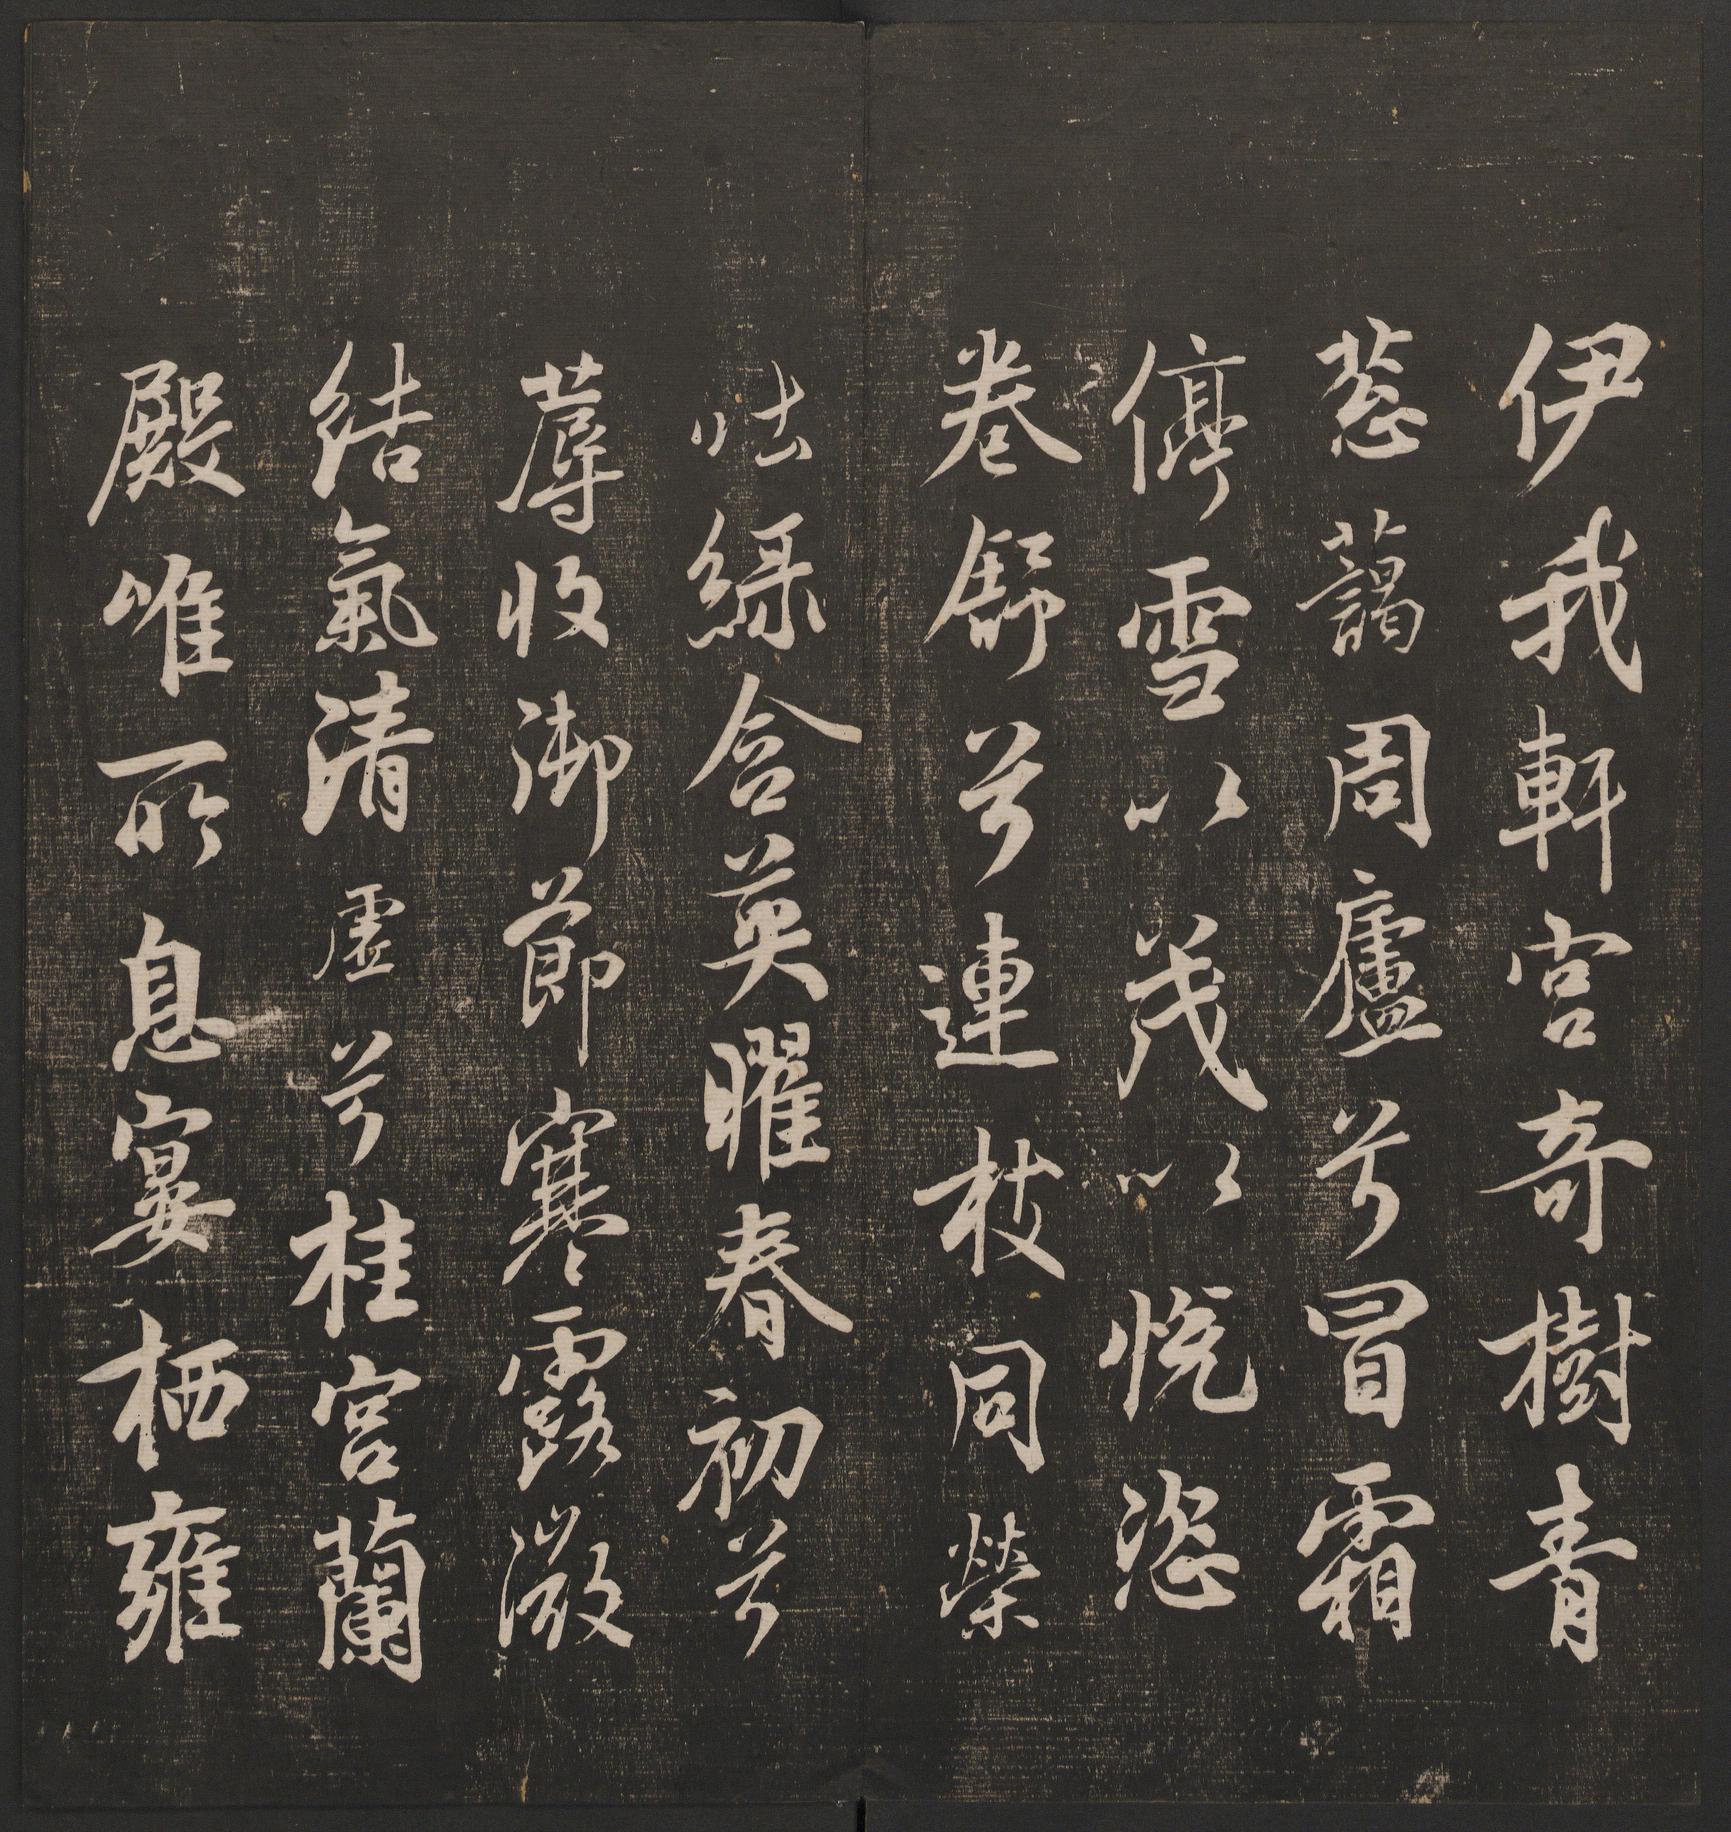 伊我軒宮奇樹青
葱藹周廬兮冒霜
停雪以茂以悅恣
卷舒兮連枝同榮
吐綠含英曜春初兮
蓐收御節寒露溦
結氣清虛兮桂宮蘭
殿唯所息宴栖雍